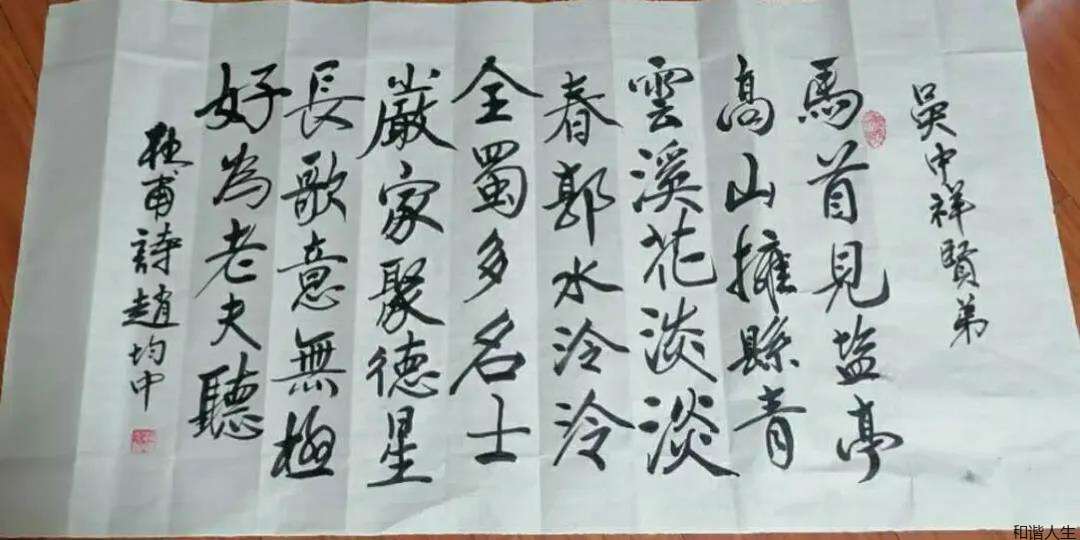 吳中祥賢弟
馬首見塩亭
高山擁縣青
雲溪花淡淡
春郭水泠泠
全蜀多名士
嚴家聚德星
長歌意無極
好為老夫聽
杜甫詩趙均中
和谐人生